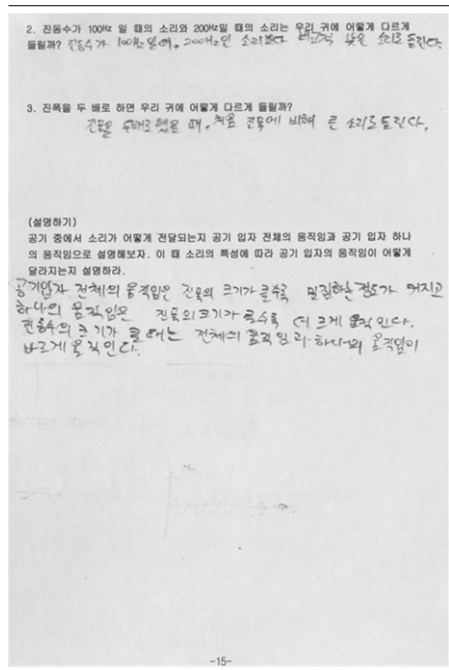 2. 진동수가 100Hz 일 때의 소리와 200Hz일 때의 소리는 우리 귀에 어떻게 다르게
들릴까? 진동수가 100Hz일때, 200Hz인 소리보다 비교적 낮은 소리로 들린다.
3. 진폭을 두 배로 하면 우리 귀에 어떻게 다르게 들릴까?
진폭을 두배로 했을 때, 처음 진폭에 비해 큰 소리로 들린다.
(설명하기)
공기 중에서 소리가 어떻게 전달되는지 공기 입자 전체의 움직임과 공기 입자 하나
의 움직임으로 설명해보자. 이 때 소리의 특성에 따라 공기 입자의 움직임이 어떻게
달라지는지 설명하라.
공기입자 전체의 움직임은 진폭의 크기가 클수록 밀집하는 정도가 커지고
하나의 움직임은 진폭의 크기가 클수록 더 크게 움직인다.
진동수의 크기가 클 때는 전체의 움직임과 하나의 움직임이
빠르게 움직인다.
-15-